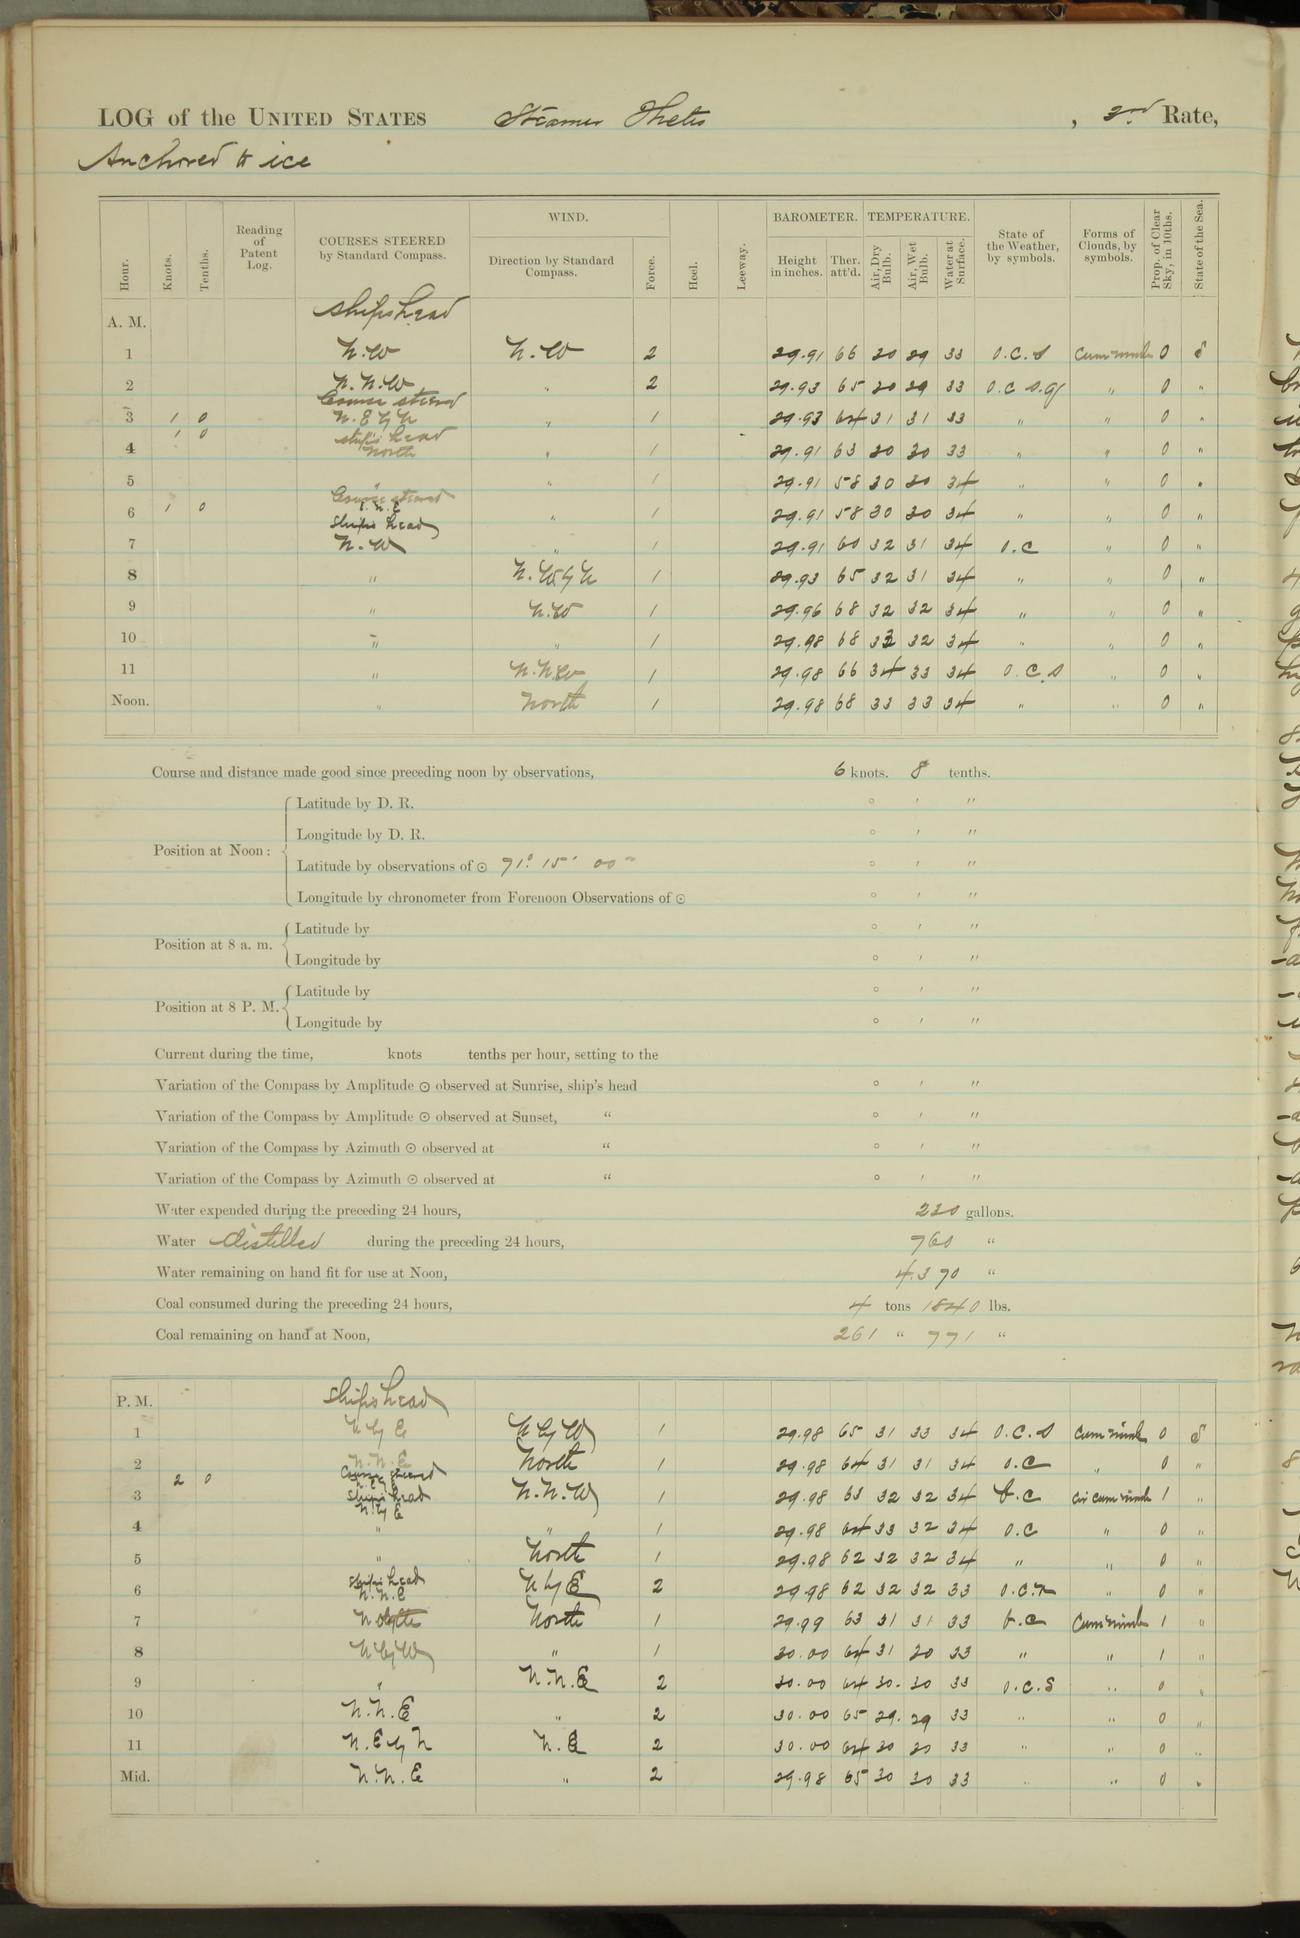 LOG of the UNITED STATES Steamer Thetis , 2nd Rate,
Anchored to ice
Hour. Knots. Tenths. Reading of Patent Log. COURSES STEERED by Standard Compass. WIND. Direction by Standard Compass. Force. Heel. Leeway. BAROMETER. Height in inches. Ther. att'd. TEMPERATURE. Air, Dry Bulb. Air, Wet Bulb. Water at Surface. State of the Weather, by symbols. Forms of Clouds, by symbols. Prop. of Clear Sky, in 10ths. State of the Sea.
A. M. Ship's head
1 N.W N.W 2 29.91 66 30 29 33 O.C.S Cum nimb 0 S
2 N.N.W " 2 29.93 65 30 29 33 O.C.S.g " 0 "
Course steered
3 1 0 N.E by N " 1 29.93 64 31 31 33 " " 0 "
1 0 ship's head
4 North " 1 29.91 63 30 30 33 " " 0 "
5 " " 1 29.91 58 30 30 34 " " 0 "
Course steered
6 1 0 E.N.E " 1 29.91 58 30 30 34 " " 0 "
Ship's head
7 N.W " 1 29.91 60 32 31 34 O.C " 0 "
8 " N.W by N 1 29.93 65 32 31 34 " " 0 "
9 " N.W 1 29.96 68 32 32 34 " " 0 "
10 " " 1 29.98 68 33 32 34 " " 0 "
11 " N.N.W 1 29.98 66 34 33 34 O.C.S " 0 "
Noon. " North 1 29.98 68 33 33 34 " " 0 "
Course and distance made good since preceding noon by observations, 6 knots. 8 tenths.
Latitude by D. R. ° ′ ″
Longitude by D. R. ° ′ ″
Position at Noon:
Latitude by observations of ☉ 71° 15′ 00″ ° ′ ″
Longitude by chronometer from Forenoon Observations of ☉ ° ′ ″
Latitude by ° ′ ″
Position at 8 a. m.
Longitude by ° ′ ″
Latitude by ° ′ ″
Position at 8 P. M.
Longitude by ° ′ ″
Current during the time, knots tenths per hour, setting to the
Variation of the Compass by Amplitude ☉ observed at Sunrise, ship's head ° ′ ″
Variation of the Compass by Amplitude ☉ observed at Sunset, “ ° ′ ″
Variation of the Compass by Azimuth ☉ observed at “ ° ′ ″
Variation of the Compass by Azimuth ☉ observed at “ ° ′ ″
Water expended during the preceding 24 hours, 230 gallons.
Water distilled during the preceding 24 hours, 760 “
Water remaining on hand fit for use at Noon, 4.370 “
Coal consumed during the preceding 24 hours, 4 tons 1840 lbs.
Coal remaining on hand at Noon, 261 “ 771 “
P. M. Ship's head
1 N by E N by W 1 29.98 65 31 33 34 O.C.S Cum nimb 0 S
2 N.N.E North 1 29.98 64 31 31 34 O.C " 0 "
2 0 Course steered
3 Ship's head N.N.W 1 29.98 63 32 32 34 b.c cir cum nimb 1 "
N. by E
4 " " 1 29.98 64 33 32 34 O.C " 0 "
5 " North 1 29.98 62 32 32 34 " " 0 "
ship's head
6 N.N.E N by E 2 29.98 62 32 32 33 O.C.r " 0 "
7 North North 1 29.99 63 31 31 33 b.c Cum nimb 1 "
8 N by W " 1 30.00 64 31 30 33 " " 1 "
9 " N.N.E 2 30.00 64 30. 30 33 O.C.S " 0 "
10 N.N.E " 2 30.00 65 29. 29 33 " " 0 "
11 N.E by N N.E 2 30.00 64 30 30 33 " " 0 "
Mid. N.N.E " 2 29.98 65 30 30 33 " " 0 "